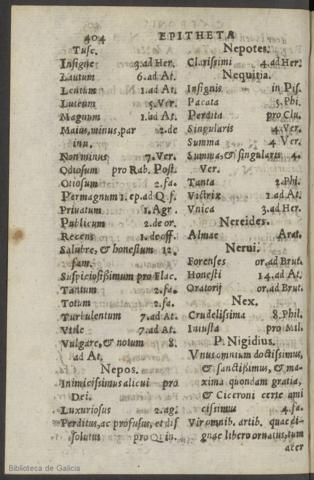 404 EPITHETA
Tusc.
Insigne 3.ad Her.
Lautum 6.ad At.
Lentum 1.ad At.
Luteum 5.Ver.
Magnum 1.ad At.
Maius, minus, par 2.de
inu.
Non minus 7.Ver.
Odiosum pro Rab. Post.
Otiosum 2.fa.
Permagnum 1. ep.ad Q.f.
Priuatum 1.Agr.
Publicum 2.de or.
Recens 1.de off.
Salubre, & honestum 12.
fam.
Suspiciosißimum pro Flac.
Tantum 2.fa.
Totum 2.fa.
Turbulentum 7.ad At.
Vtile 7.ad At.
Vulgare, & notum 8.
ad At.
Nepos.
Inimicissimus alicui pro
Dei.
Luxuriosus 2.ag.
Perditus, ac profusus, et dis
solutus pro Quin.
Nepotes.
Clarissimi 4.ad Her.
Nequitia.
Insignis in Pis.
Pacata 5.Phi.
Perdita pro Clu.
Singularis 4.Ver.
Summa 4 Ver.
Summa, & singularis 4.
Ver.
Tanta 2.Phi.
Victrix 1.ad At.
Vnica 3.ad Her.
Nereides.
Almae Arat.
Nerui.
Forenses or.ad Brut.
Honesti 14.ad At.
Oratorij or.ad Brut.
Nex.
Crudelissima 8.Phil.
Iniusta pro Mil.
P. Nigidius.
Vnus omnium doctissimus,
& sanctißimus, & ma
xima quondam gratia,
& Ciceroni certe ami
cissimus 4.fa.
Vir omnib. artib. quae di-
gnae libero ornatus, tum
acer
Biblioteca de Galicia